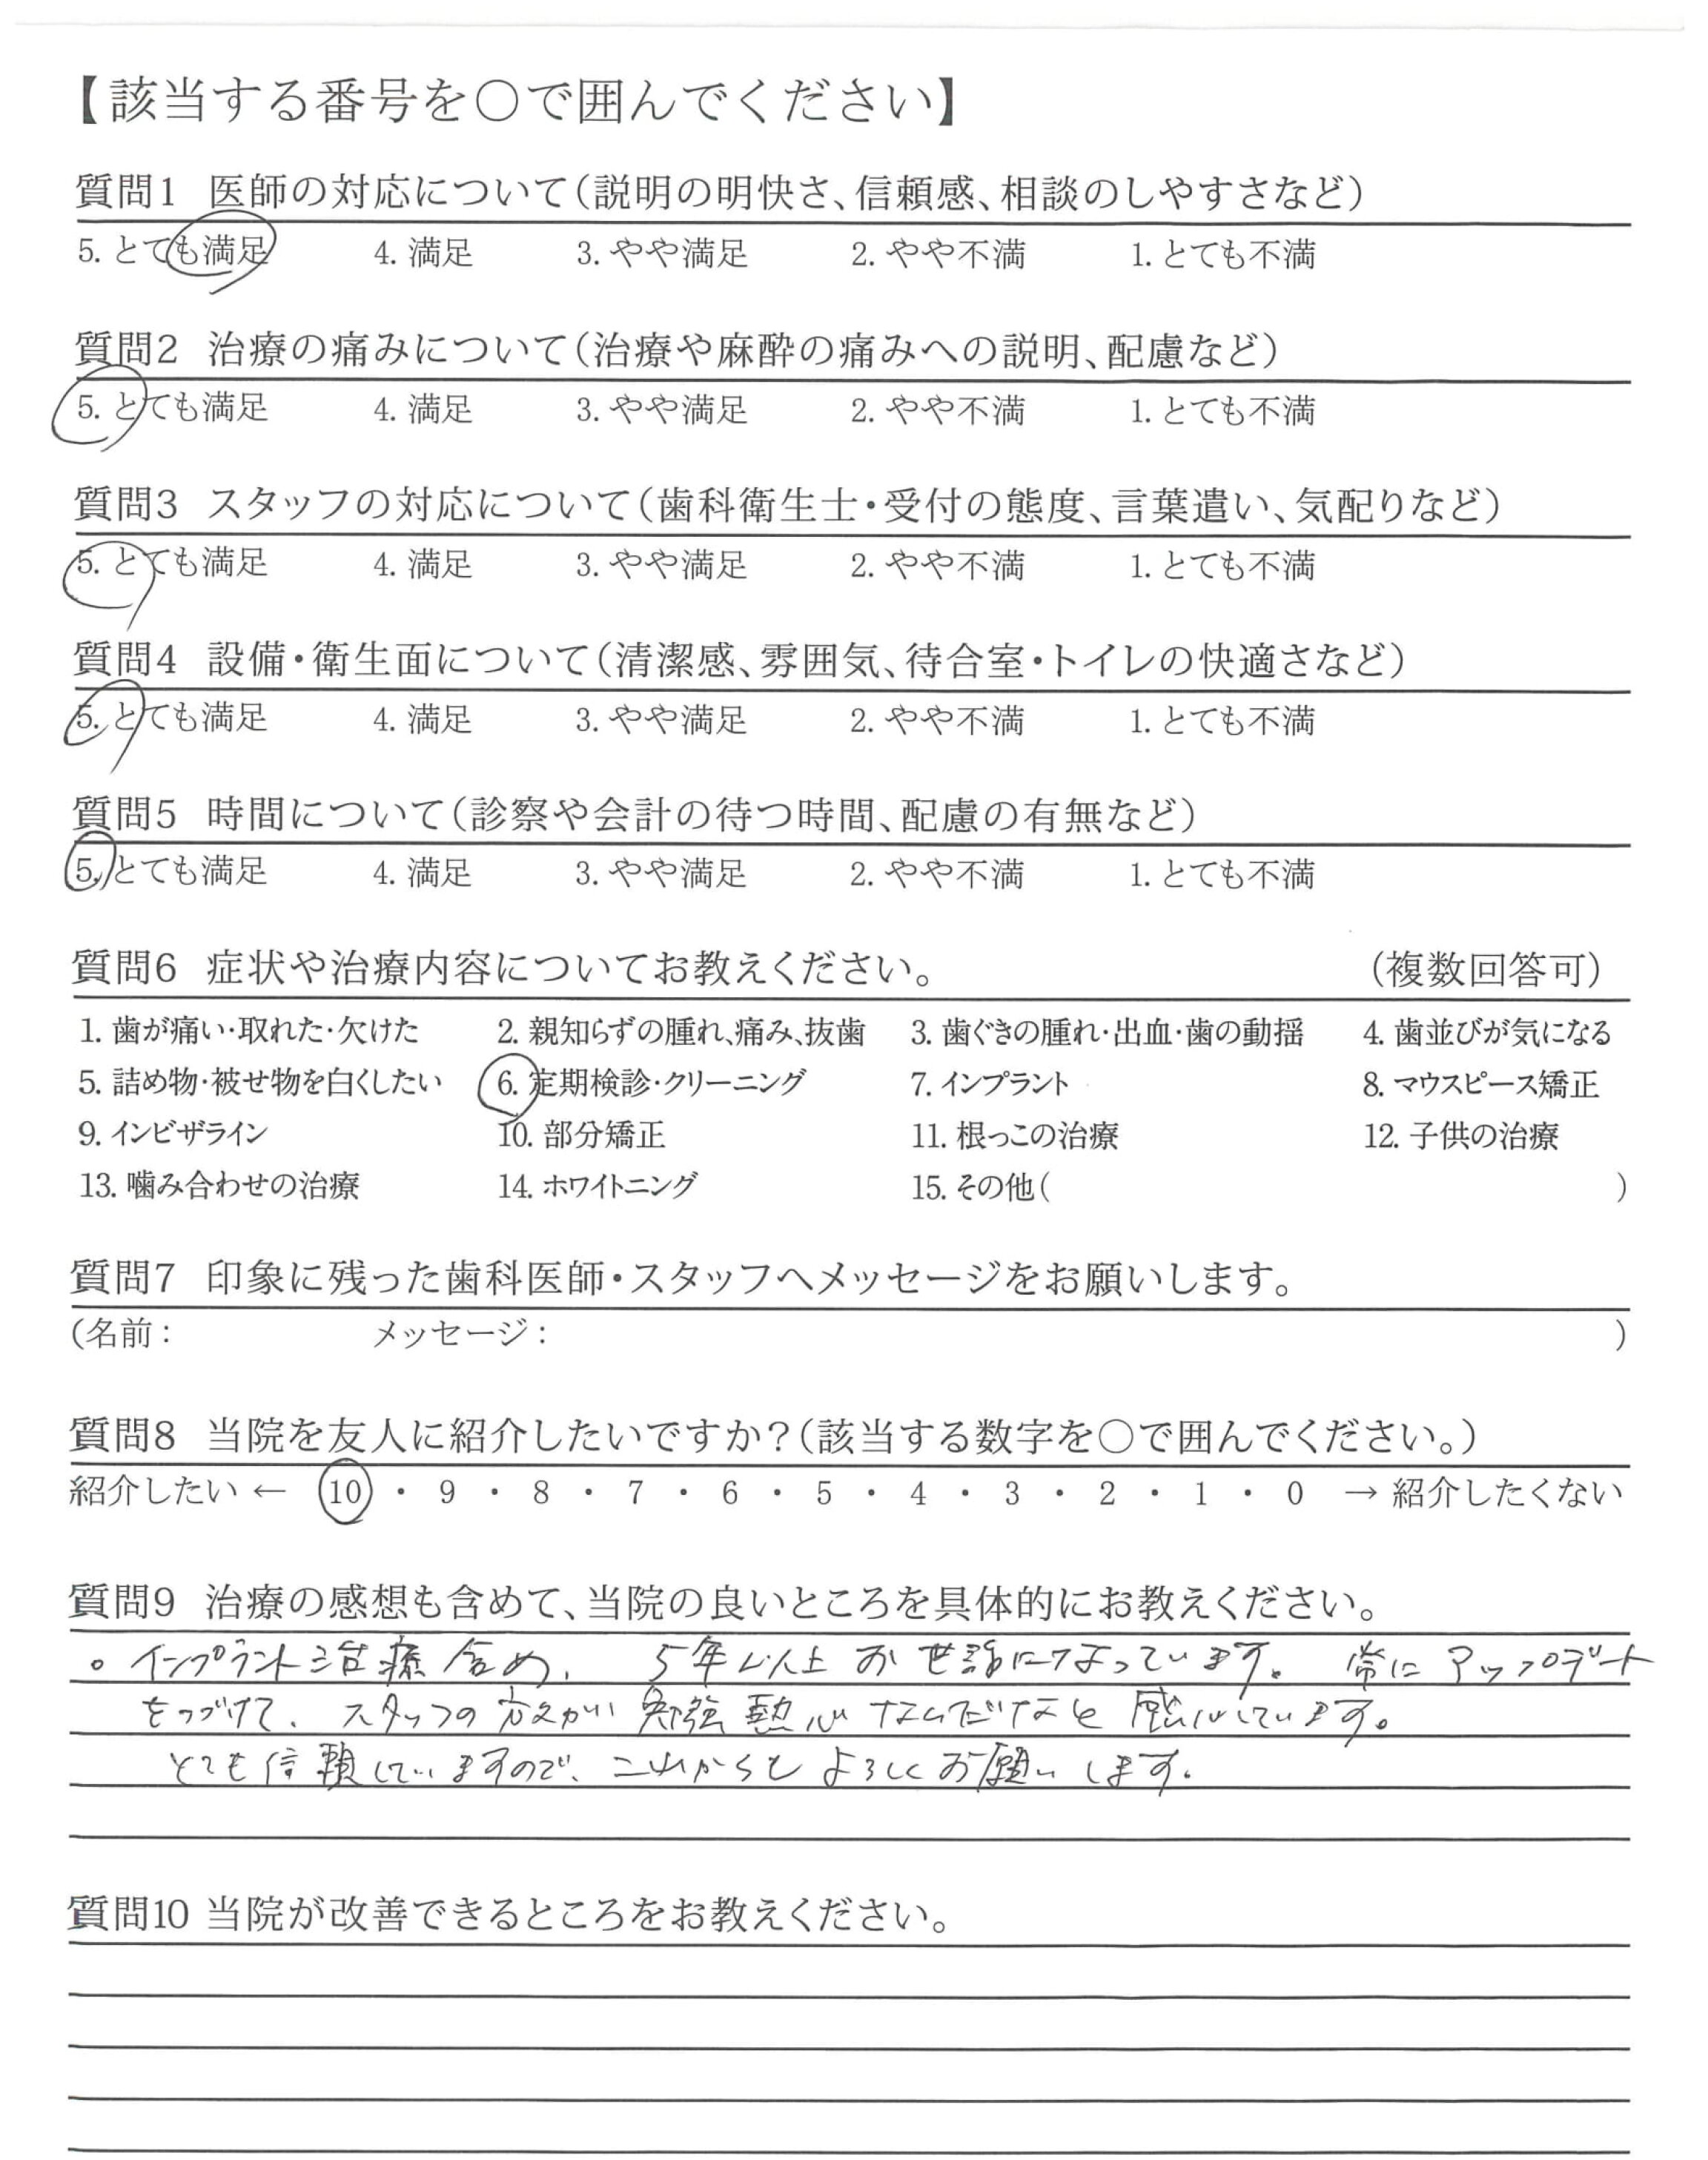 【該当する番号を○で囲んでください】
質問1 医師の対応について(説明の明快さ、信頼感、相談のしやすさなど)
5. とても満足 4. 満足 3. やや満足 2. やや不満 1. とても不満
質問2 治療の痛みについて(治療や麻酔の痛みへの説明、配慮など)
5. とても満足 4. 満足 3. やや満足 2. やや不満 1. とても不満
質問3 スタッフの対応について(歯科衛生士・受付の態度、言葉遣い、気配りなど)
5. とても満足 4. 満足 3. やや満足 2. やや不満 1. とても不満
質問4 設備・衛生面について(清潔感、雰囲気、待合室・トイレの快適さなど)
5. とても満足 4. 満足 3. やや満足 2. やや不満 1. とても不満
質問5 時間について(診察や会計の待つ時間、配慮の有無など)
5. とても満足 4. 満足 3. やや満足 2. やや不満 1. とても不満
質問6 症状や治療内容についてお教えください。 (複数回答可)
1. 歯が痛い・取れた・欠けた 2. 親知らずの腫れ、痛み、抜歯 3. 歯ぐきの腫れ・出血・歯の動揺 4. 歯並びが気になる
5. 詰め物・被せ物を白くしたい 6. 定期検診・クリーニング 7. インプラント 8. マウスピース矯正
9. インビザライン 10. 部分矯正 11. 根っこの治療 12. 子供の治療
13. 噛み合わせの治療 14. ホワイトニング 15. その他( )
質問7 印象に残った歯科医師・スタッフへメッセージをお願いします。
(名前： メッセージ： )
質問8 当院を友人に紹介したいですか？(該当する数字を○で囲んでください。)
紹介したい ← 10 ・ 9 ・ 8 ・ 7 ・ 6 ・ 5 ・ 4 ・ 3 ・ 2 ・ 1 ・ 0 → 紹介したくない
質問9 治療の感想も含めて、当院の良いところを具体的にお教えください。
。インプラント治療含め、5年以上お世話になっています。常にアップデート
をつづけて、スタッフの方々がい勉強熱心なんだなと感心しています。
とても信頼していますので、これからもよろしくお願いします。
質問10 当院が改善できるところをお教えください。